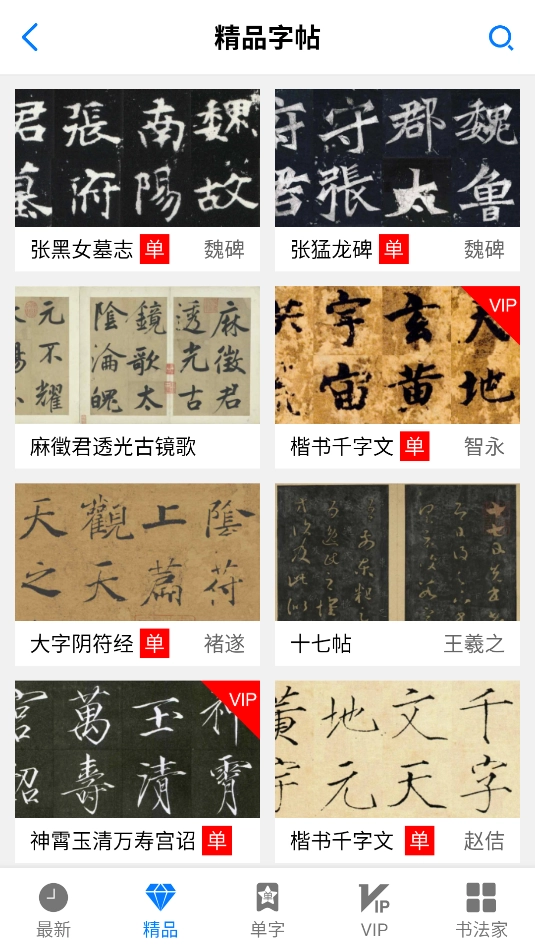 精品字帖
君 張 南 魏
墓 府 陽 故
张黑女墓志 单 魏碑
府 守 郡 魏
君 張 太 鲁
张猛龙碑 单 魏碑
元 鏡 透 麻
不 陰 歌 光 徵
耀 淪 太 古 君
麻徵君透光古镜歌
VIP
宇 玄 天
宙 黄 地
楷书千字文 单 智永
天 觀 上 陰
之 天 篇 符
大字阴符经 单 褚遂
十七帖 王羲之
VIP
宫 萬 玉 神
詔 壽 清 霄
神霄玉清万寿宫诏 单
黃 地 文 千
宇 元 天 字
楷书千字文 单 赵佶
最新
精品
单
单字
VIP
VIP
书法家